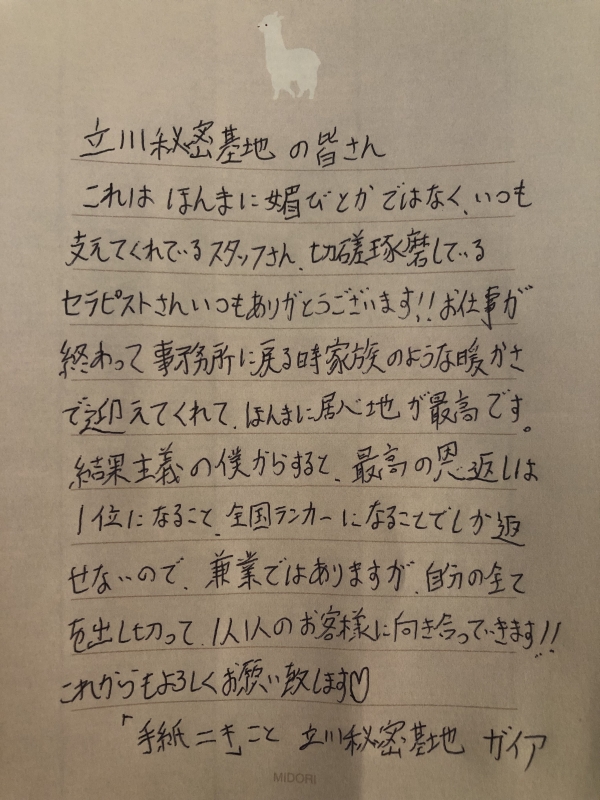 立川秘密基地の皆さん
これはほんまに媚びとかではなく、いつも
支えてくれているスタッフさん、切磋琢磨している
セラピストさんいつもありがとうございます!!お仕事が
終わって事務所に戻る時家族のような暖かさ
で迎えてくれて、ほんまに居心地が最高です。
結果主義の僕からすると、最高の恩返しは
1位になること、全国ランカーになることでしか返
せないので、兼業ではありますが、自分の全て
を出し切って、1人1人のお客様に向き合っていきます!!
これからもよろしくお願い致します♡
「手紙ニキ」こと 立川秘密基地 ガイア
MIDORI